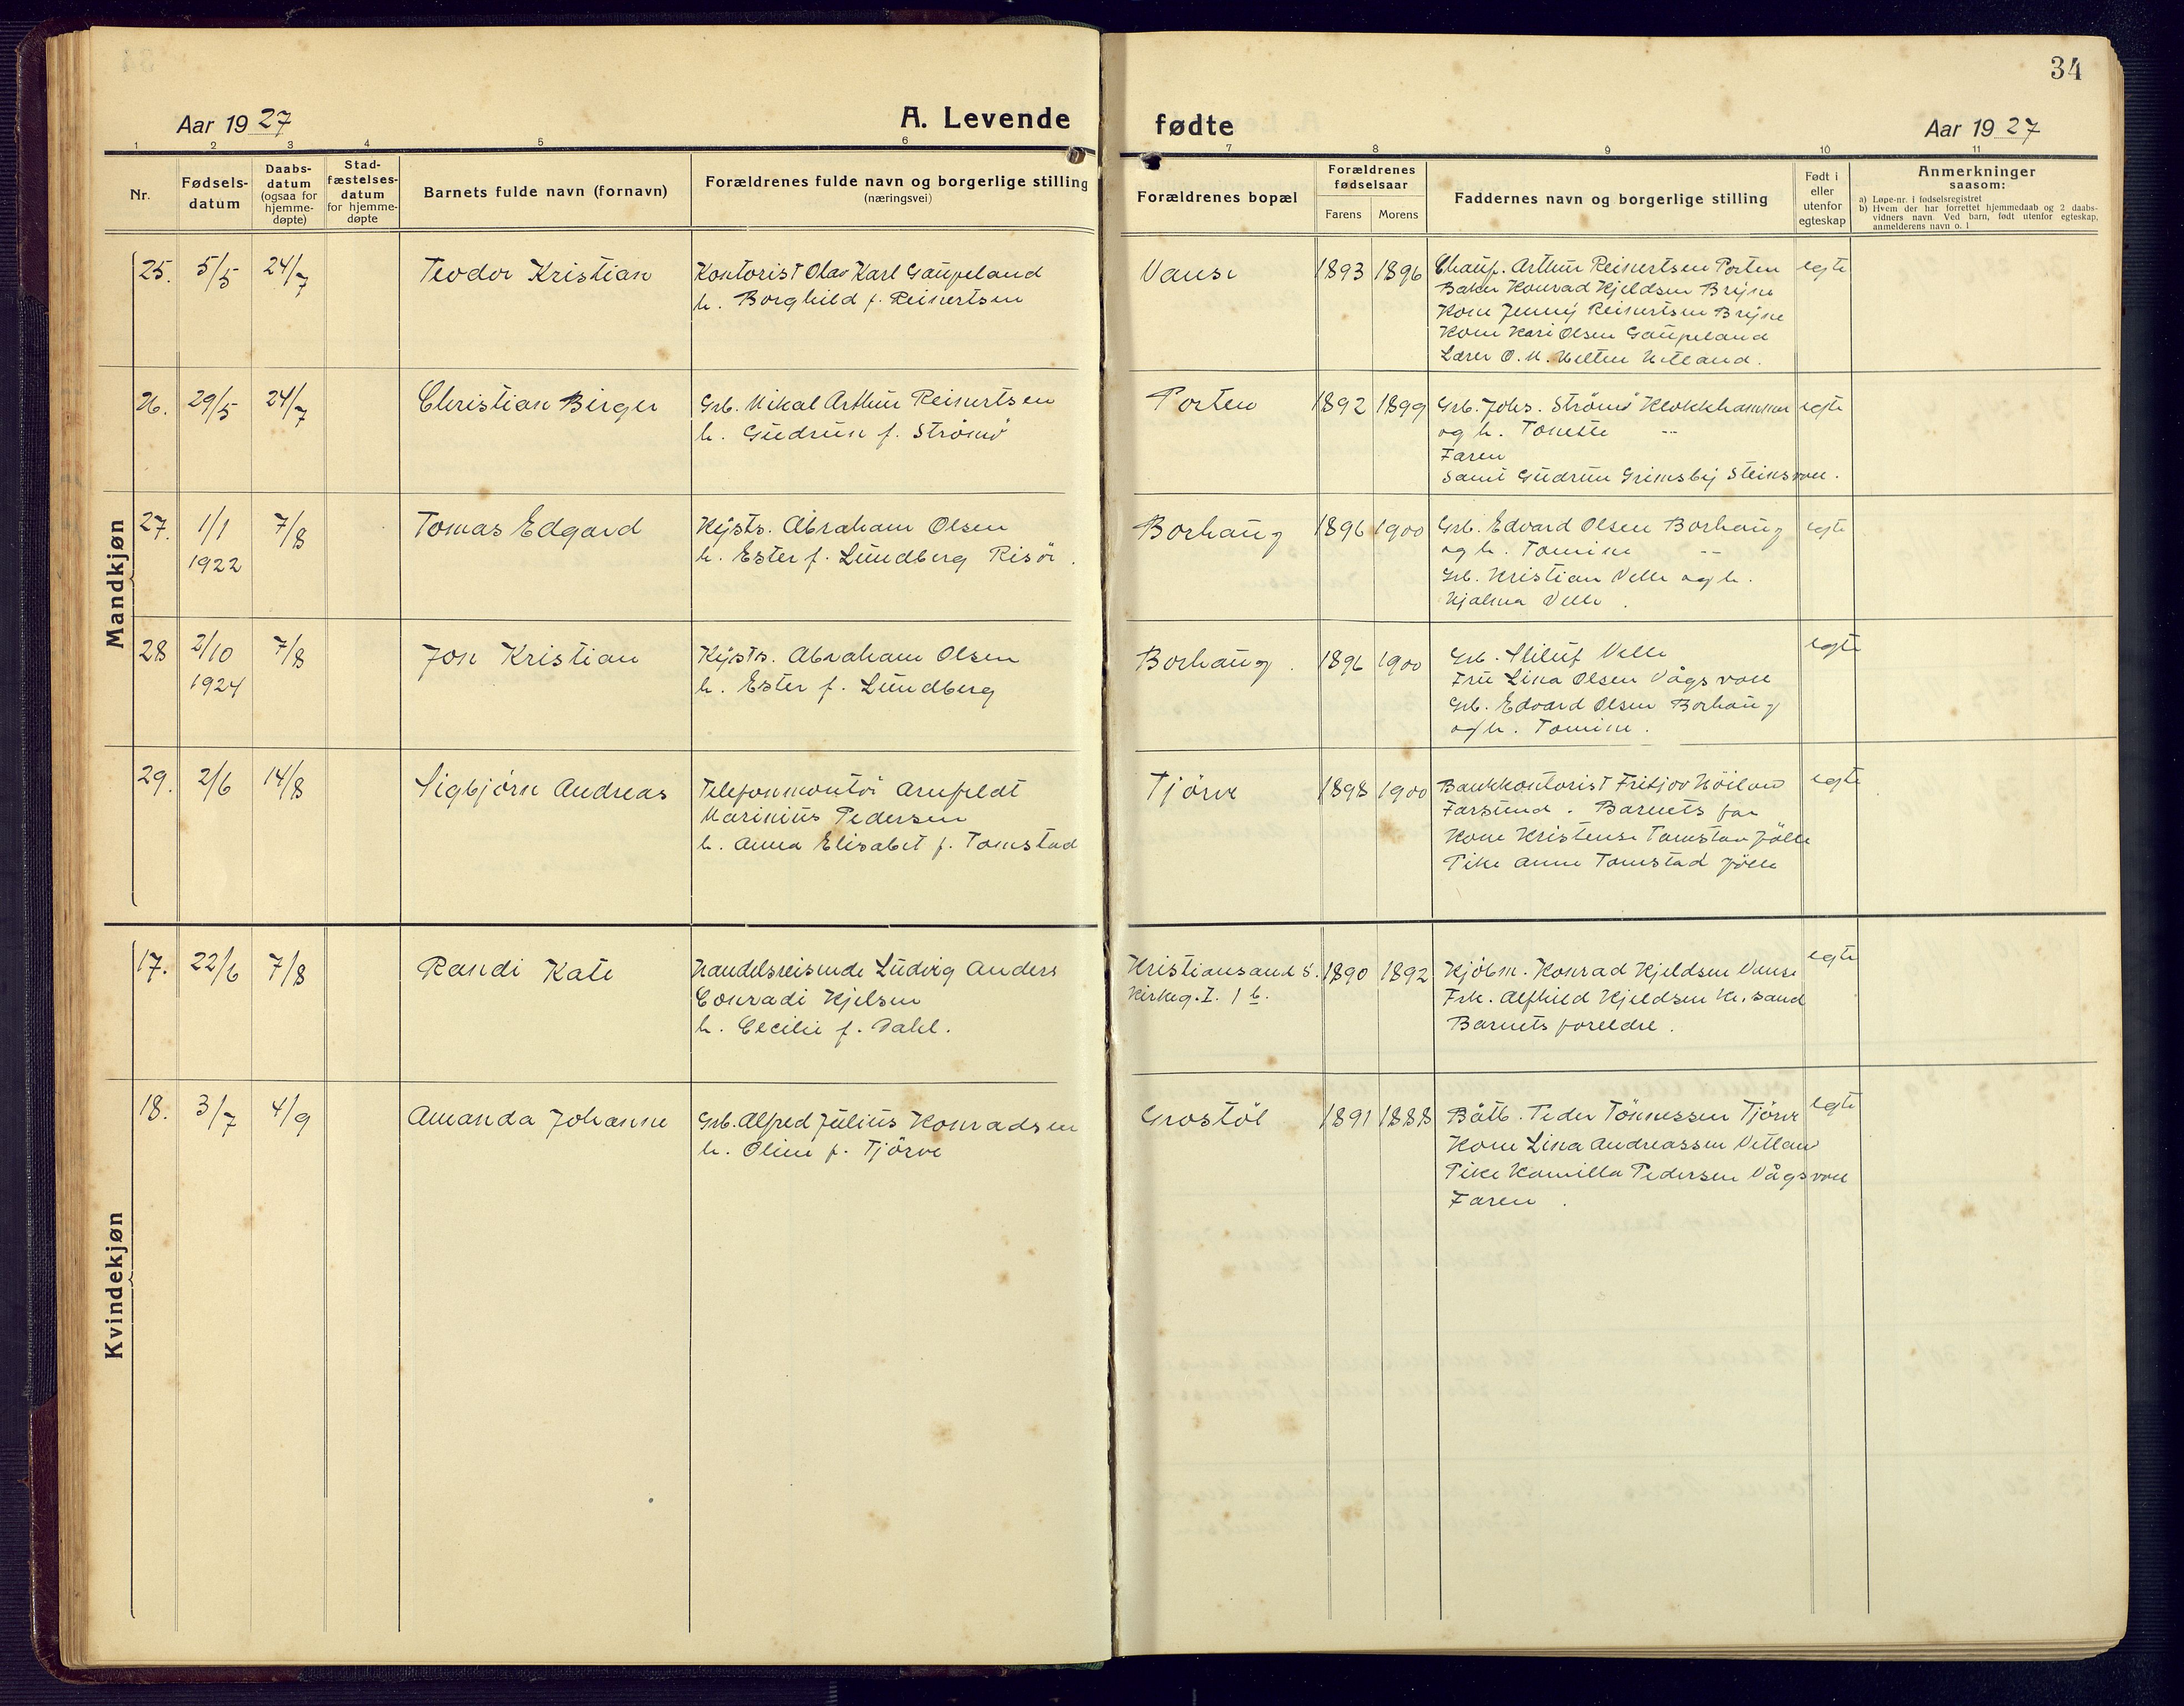 34
Aar 1927
A. Levende fødte
Aar 1927
1 2 3 4 5 6 7 8 9 10 11
Nr.
Fødsels-
datum
Daabs-
datum
(ogsaa for
hjemme-
døpte)
Stad-
fæstelses-
datum
for hjemme-
døpte
Barnets fulde navn (fornavn)
Forældrenes fulde navn og borgerlige stilling
(næringsvei)
Forældrenes bopæl
Forældrenes
fødselsaar
Farens Morens
Faddernes navn og borgerlige stilling
Født i
eller
utenfor
egteskap
Anmerkninger
saasom:
a) Løpe-nr. i fødselsregistret
b) Hvem der har forrettet hjemmedaab og 2 daabs-
vidners navn. Ved barn, født utenfor egteskap,
anmelderens navn o. l
Mandkjøn
25. 5/5 24/7 Teodor Kristian
Kontorist Olav Karl Gaupeland
h. Borghild f. Reinertsen
Vanse 1893 1896
Chauf. Arthur Reinertsen Porten
Baker Konrad Kjeldsen Bryne
Kone Jenny Reinertsen Bryne
Kone Kari Olsen Gaupeland
Lærer O. M. Hetland.
egte
26. 29/5 24/7 Christian Birger
Grb. Mikal Arthur Reinertsen
h. Gudrun f. Strømø
Porten 1892 1899
Grb. Johs. Strømø Klokkhammer
og h. Tonette --
Faren
samt Gudrun Grimsby Steinsvoll.
egte
27. 1/1 7/8 Tomas Edgard
1922
Kysts. Abraham Olsen
h. Ester f. Lundberg Risør.
Borhaug 1896 1900
Grb. Edvard Olsen Borhaug
og h. Tomine --
Grb. Kristian Velle og h.
Hjalma Velle.
egte
28 2/10 7/8 Jon Kristian
1924
Kysts. Abraham Olsen
h. Ester f. Lundberg
Borhaug. 1896 1900
Grb. Velle
Fru Lina Olsen Vågsvoll
Grb. Edvard Olsen Borhaug
og h. Tomine.
egte
29. 2/6 14/8 Sigbjørn Andreas
Telefonmontør Arnfeldt
Marinius Pedersen
h. Anna Elisabet f. Tomstad
Tjørve 1898 1900
Bankkontorist Fritjov Høiland
Farsund. Barnets far
Kone Kristense Tomstad Jølle
Pike Anne Tomstad Jølle
egte
Kvindekjøn
17. 22/6 7/8 Randi Kate
Handelsreisende Ludvig Anders
Conradi Kjelsen
h. Cecilie f. Dahl.
Kristiansand S. 1890 1892
Kirkeg. I. 1 b.
Kjøbm. Konrad Kjeldsen Vanse
Frk. Alfhild Kjeldsen Kr.sand
Barnets foreldre.
egte
18. 3/7 4/9 Amanda Johanne
Grb. Alfred Julius Konradsen
h. Oline f. Tjørve
Grostøl 1891 1888
Båtb. Peder Tønnessen Tjørve
Kone Lina Andreassen Vetland
Pike Kamilla Pedersen Vågsvoll
Faren.
egte